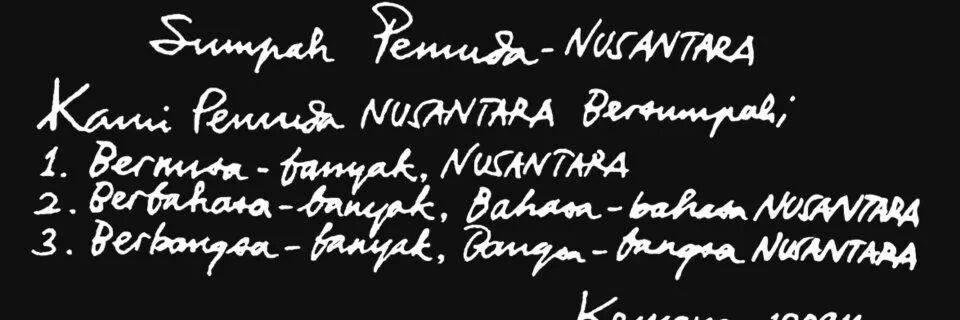 Sumpah Pemuda - NUSANTARA
Kami Pemuda NUSANTARA Bersumpah;
1. Bernusa - banyak, NUSANTARA
2. Berbahasa - banyak, Bahasa - bahasa NUSANTARA
3. Berbangsa - banyak, Bangsa - bangsa NUSANTARA